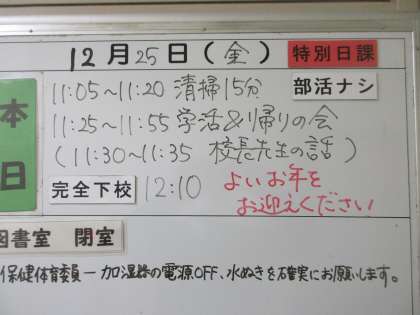 12月25日(金) 特別日課
本日
11:05〜11:20 清掃15分 部活ナシ
11:25〜11:55 学活&帰りの会
(11:30〜11:35 校長先生の話)
完全下校 12:10 よいお年を
お迎えください
図書室 閉室
保健体育委員ー加湿器の電源OFF、水ぬきを確実にお願いします。